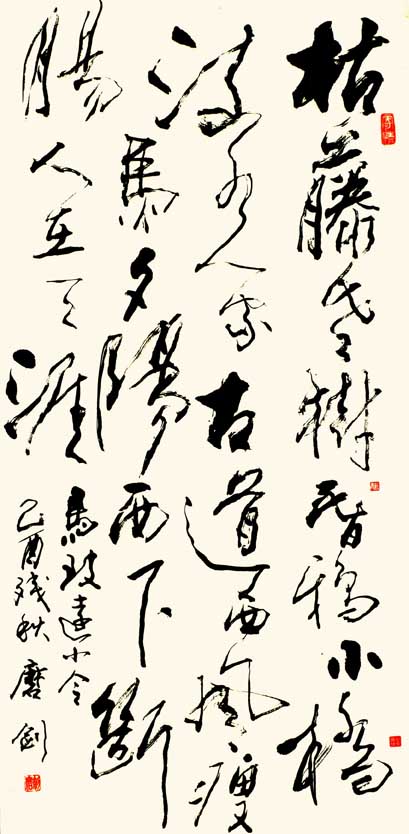 枯藤老樹昏鴉小橋
流水人家古道西風瘦
馬夕陽西下斷
腸人在天涯
馬致遠小令
己酉残秋磨剑